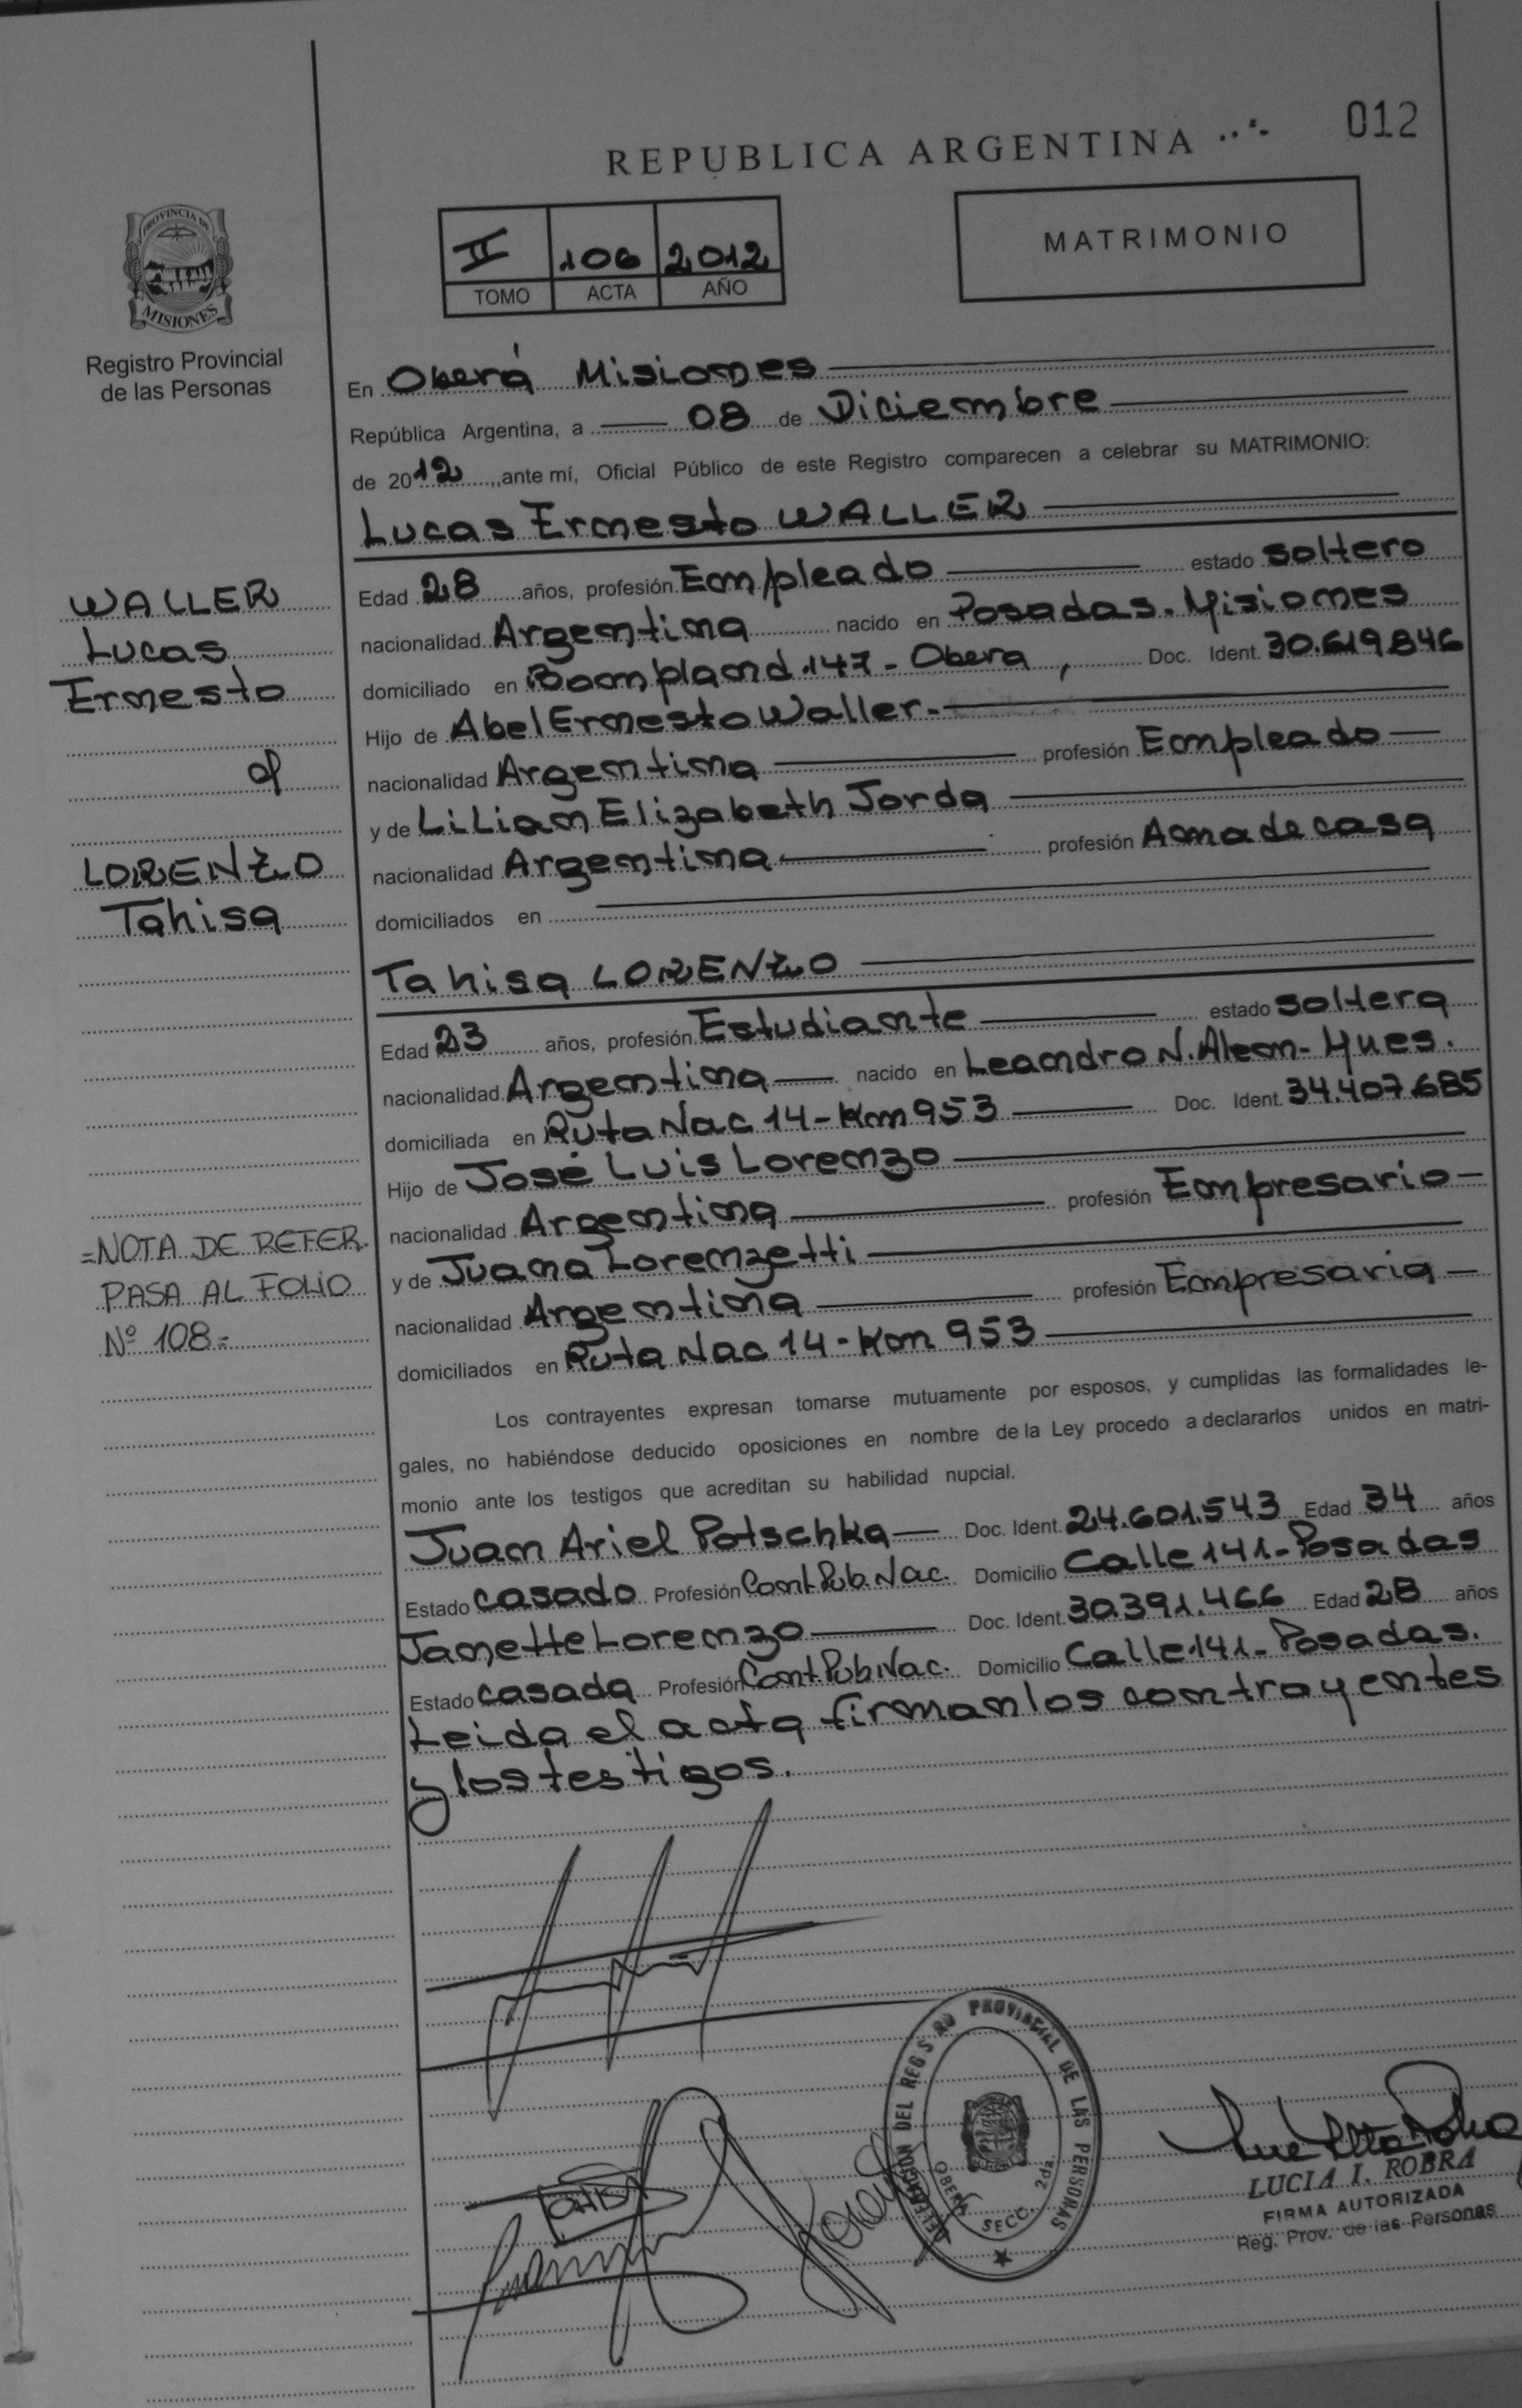 012
REPUBLICA ARGENTINA
PROVINCIA DE
MISIONES
Registro Provincial
de las Personas
II 106 2012
TOMO ACTA AÑO
MATRIMONIO
En Oberá Misiones
República Argentina, a 08 de Diciembre
de 2012, ante mí, Oficial Público de este Registro comparecen a celebrar su MATRIMONIO:
Lucas Ernesto WALLER
Edad 28 años, profesión Empleado estado soltero
nacionalidad Argentina nacido en Posadas - Misiones
domiciliado en Bompland 147 - Obera, Doc. Ident. 30.619.846
Hijo de Abel Ernesto Waller.-
nacionalidad Argentina profesión Empleado
y de Lilian Elizabeth Jorda
nacionalidad Argentina profesión Ama de casa
domiciliados en
Tahisa LORENZO
Edad 23 años, profesión Estudiante estado soltera
nacionalidad Argentina nacido en Leandro N. Alem -
domiciliada en Ruta Nac 14 - Km 953 Doc. Ident. 34.407.685
Hijo de José Luis Lorenzo
nacionalidad Argentina profesión Empresario
y de Juana Lorenzetti
nacionalidad Argentina profesión Empresaria
domiciliados en Ruta Nac 14 - Km 953
Los contrayentes expresan tomarse mutuamente por esposos, y cumplidas las formalidades le-
gales, no habiéndose deducido oposiciones en nombre de la Ley procedo a declararlos unidos en matri-
monio ante los testigos que acreditan su habilidad nupcial.
Juan Ariel Potschka Doc. Ident. 24.601.543 Edad 34 años
Estado casado Profesión Cont. Pub. Nac. Domicilio Calle 141 - Posadas
Janette Lorenzo Doc. Ident. 30.391.466 Edad 28 años
Estado casada Profesión Cont. Pub. Nac. Domicilio Calle 141 - Posadas.
Leida el acta firman los contrayentes
y los testigos.
WALLER
Lucas
Ernesto
LORENZO
Tahisa
=NOTA DE REFER.
PASA AL FOLIO
Nº 108=
DELEGACION DEL REGISTRO PROVINCIAL DE LAS PERSONAS
OBERA SECC. 2da
LUCIA I. ROBRA
FIRMA AUTORIZADA
Reg. Prov. de las Personas